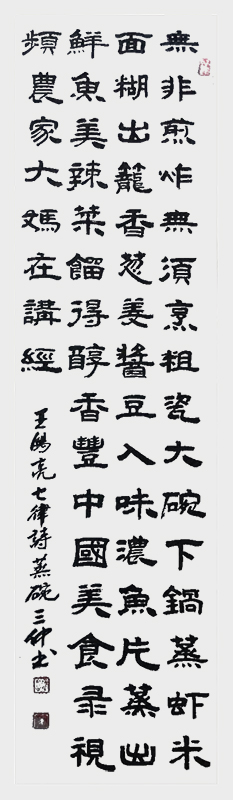 無非煎炸無須烹粗瓷大碗下鍋蒸虾米
面糊出籠香葱姜醬豆入味濃魚片蒸出
鮮魚美辣菜餾得醇香豐中國美食录視
頻農家大媽在講經
王鴻亮七律詩蒸碗三